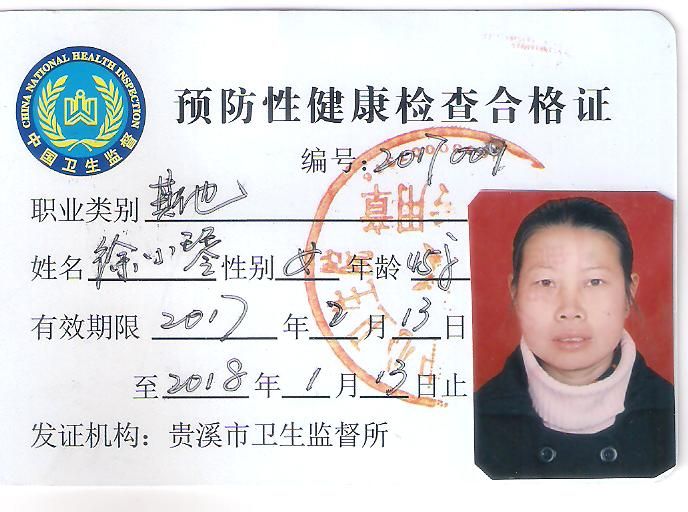 CHINA NATIONAL HEALTH INSPECTION
中国卫生监督
预防性健康检查合格证
编号:2017009
职业类别 其他
姓名 徐小琴 性别 女 年龄 45岁
有效期限 2017 年 2 月 13 日
至 2018 年 1 月 13 日止
发证机构：贵溪市卫生监督所